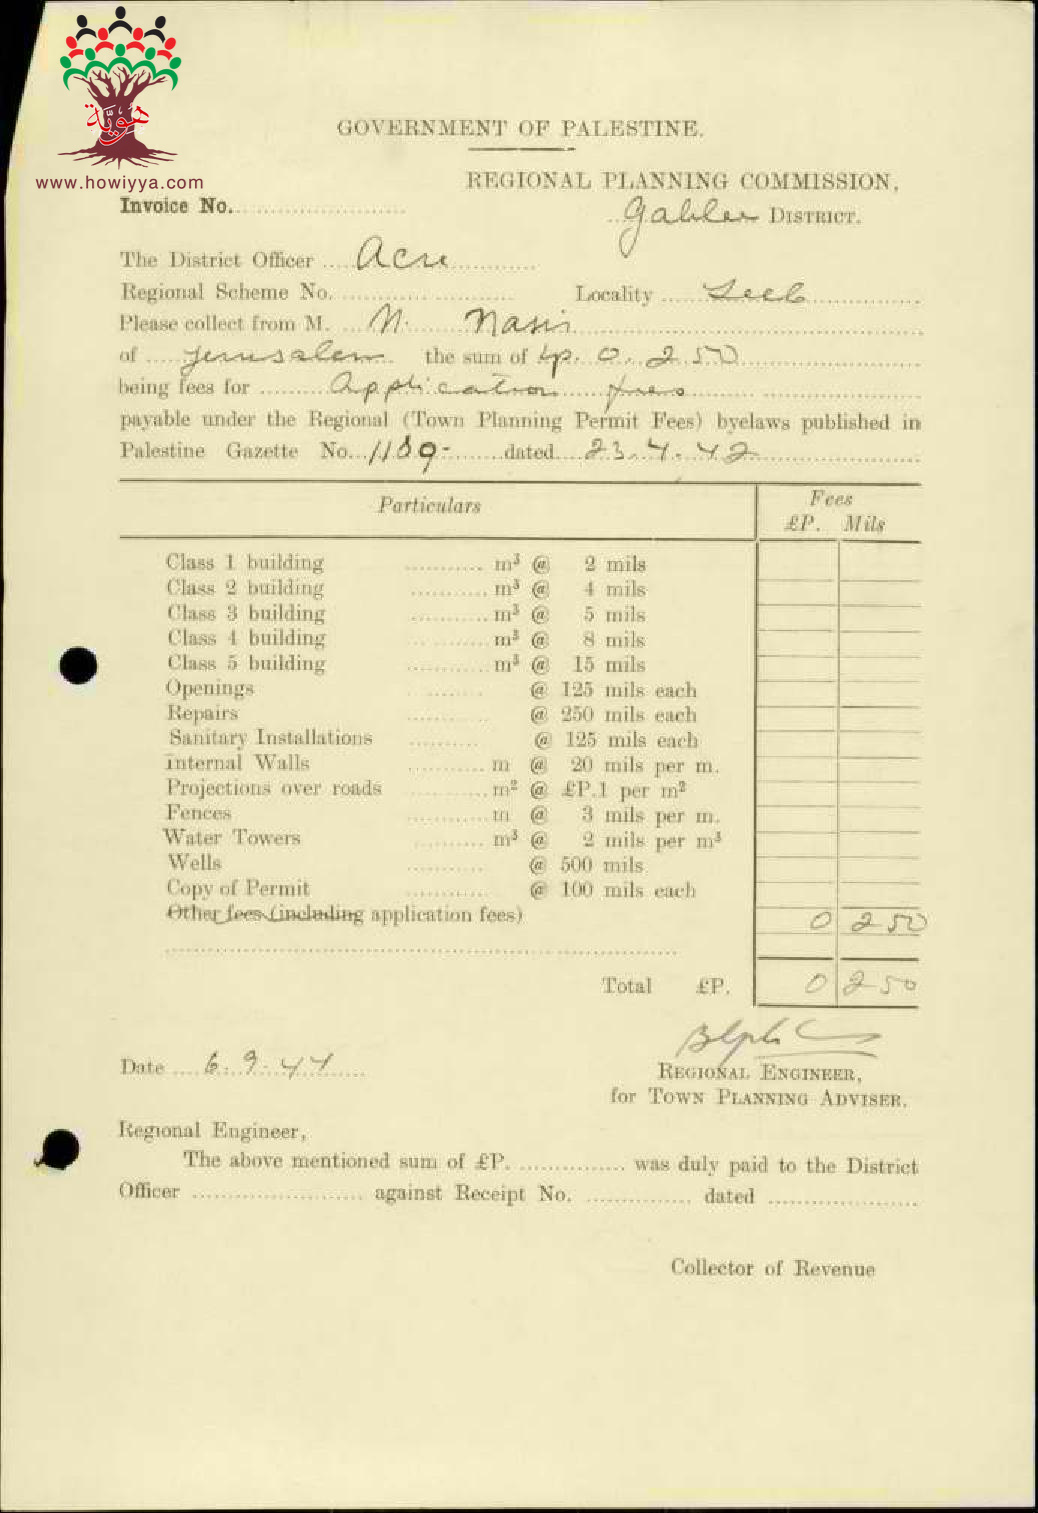 هوية
www.howiyya.com
GOVERNMENT OF PALESTINE.
REGIONAL PLANNING COMMISSION,
Invoice No. ........................
Galilee DISTRICT.
The District Officer ..... Acre ............
Regional Scheme No. ........................ Locality ...... Zeeb ..............
Please collect from M. ... M. ...... Nasir ..............................
of ..... Jerusalem .. the sum of Lp. 0. 250 ..............................
being fees for ......... Application ..... fees ..............................
payable under the Regional (Town Planning Permit Fees) byelaws published in
Palestine Gazette No... 1189- ........ dated.... 23.4.42 ..............................
Particulars Fees
£P. Mils
Class 1 building ............ m³ @ 2 mils
Class 2 building ............ m³ @ 4 mils
Class 3 building ............ m³ @ 5 mils
Class 4 building ............ m³ @ 8 mils
Class 5 building ............ m³ @ 15 mils
Openings ............ @ 125 mils each
Repairs ............ @ 250 mils each
Sanitary Installations .......... @ 125 mils each
Internal Walls ............ m @ 20 mils per m.
Projections over roads ............ m² @ £P.1 per m²
Fences ............ m @ 3 mils per m.
Water Towers .......... m³ @ 2 mils per m³
Wells ............ @ 500 mils
Copy of Permit ............ @ 100 mils each
Other fees (including application fees) 0 250
..............................................................................
Total £P. 0 250
Date .... 6.9.44 .........
REGIONAL ENGINEER,
for TOWN PLANNING ADVISER.
Regional Engineer,
The above mentioned sum of £P. ................ was duly paid to the District
Officer ........................ against Receipt No. ............... dated ......................
Collector of Revenue